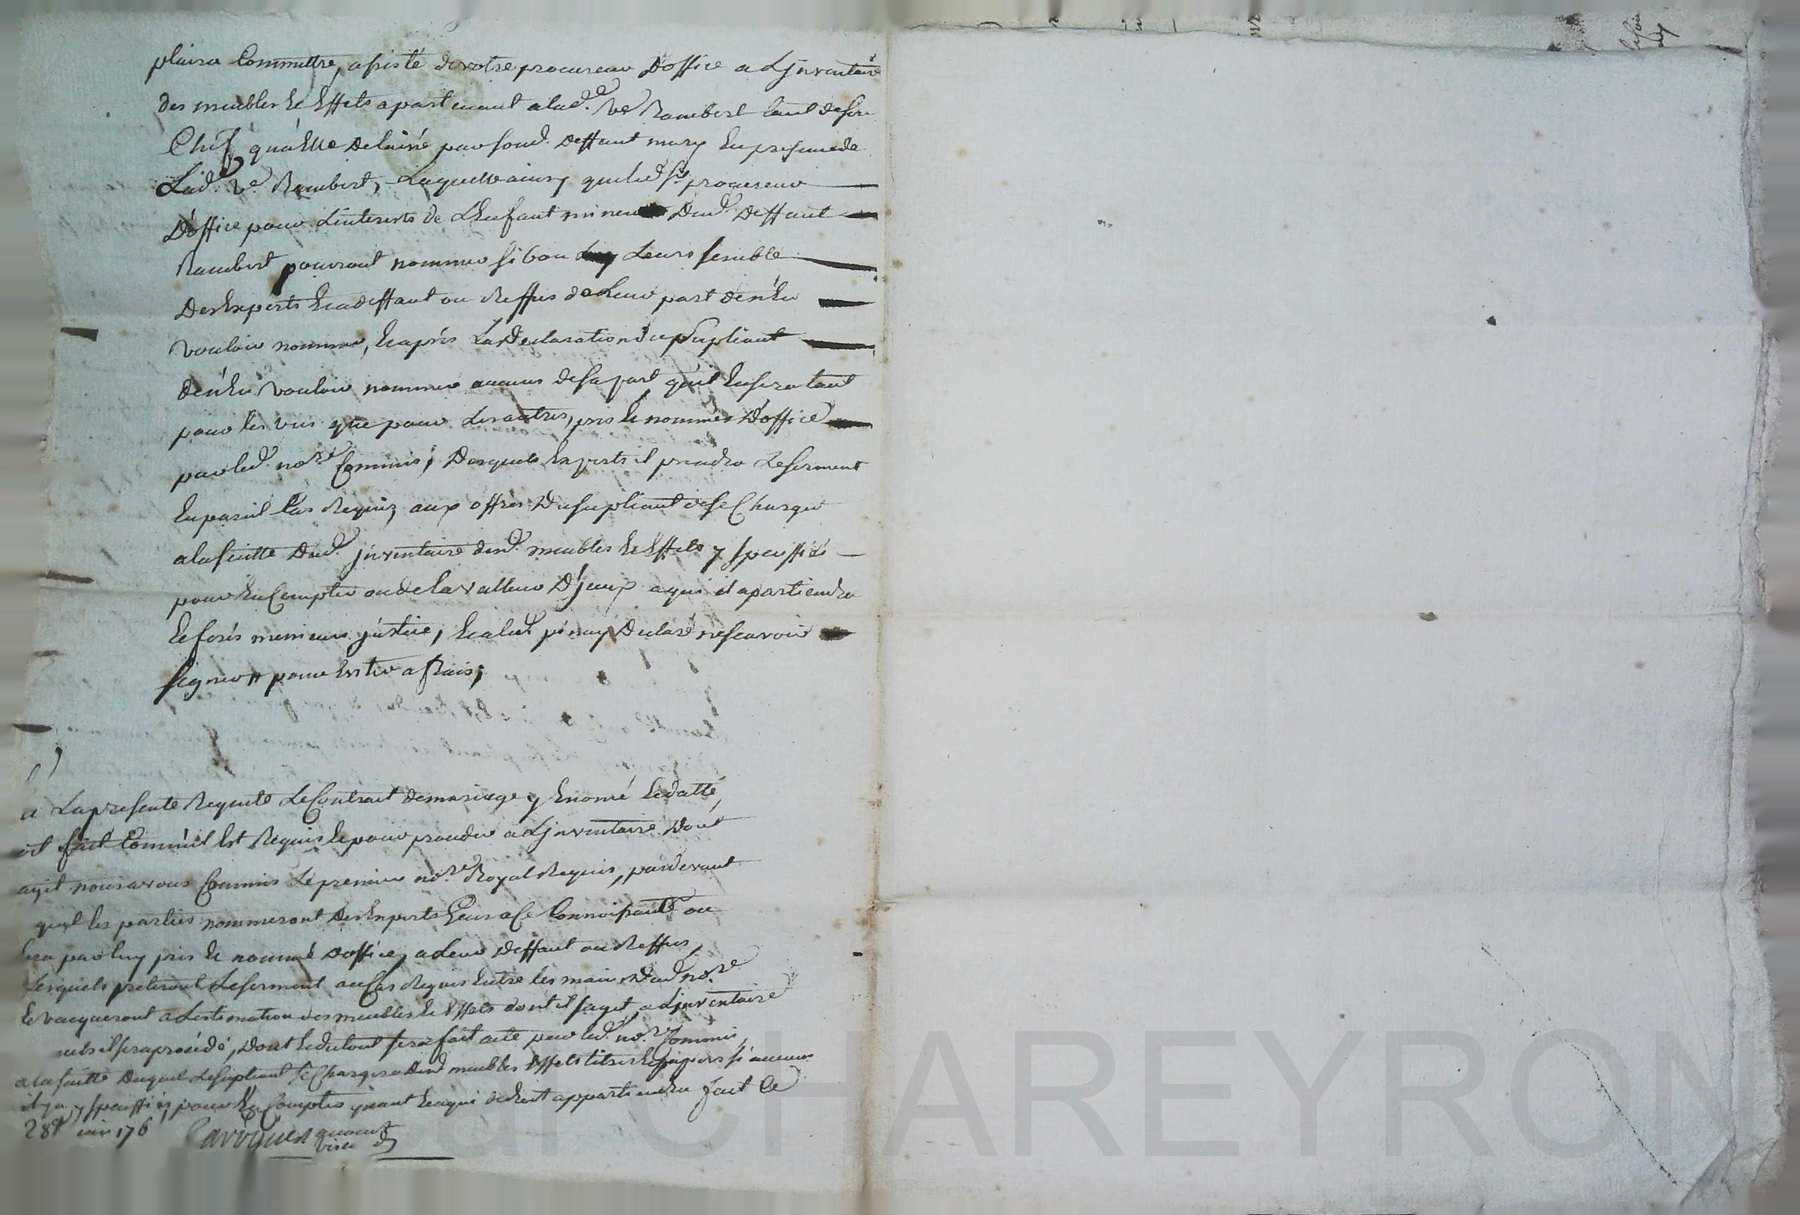 plaira Commettre, assisté de votre procureur D'office a L'jnventaire
des meubles & Effets apartenant a lad.e ve Rambert tant de son
Chef, qu'a Elle Delaissé par sond. deffunt mary En presence de
Lad. ve. Rambert, Laquelle ainsy que led. sr procureur
D'office pour L'interests de L'Enfant mineur Dud. Deffunt
Rambert pourront nommer si bon Leurs semble
Des Experts & a deffaut ou Reffus de Leur part d'en En
vouloir nommer, & aprés La Declaration du supliant
den En vouloir nommer aucuns de sa part qu'il En sera tant
pour les uns que pour Les autres, pris & nommés D'office
par led. nore Commis, Desquels Experts il prendra Le serment
En pareil Cas Requis, aux offres Du supliant de se Charger
a la suitte Dud. jnventaire desd. meubles & Effets y speciffiés
pour En Compter ou de la valleur D'jceux a qui il apartiendra
& serés justice, & a led. Declaré ne scavoir
signer pour Estre a frais;
a La presente Requette Le Contrat de mariage y Enoncé & datté,
soit fait Comm'il Est Requis & pour proceder a L'jnventaire Dont
agit nous avons Commis Le premier nore Royal Requis, pardevant
quel les parties nommeront Des Experts Gens a Ce Connoissants ou
sera par luy pris & nommé D'office, a Leur deffaut ou Reffus,
Lesquels preteront Le serment au Cas Requis Entre les mains Dud. nore
& vacqueront a L'estimation des meubles & Effets dont il s'agit, a L'jnventaire
sera procédé, Dont & du tout sera fait acte par led. nore Commis,
a la suitte Duquel Le supliant se Chargera Desd. meubles Effets titres & papiers si aucuns
il y a, y speciffiés pour En Compter quant & a qui de droit appartiendra fait Ce
28e juin 176